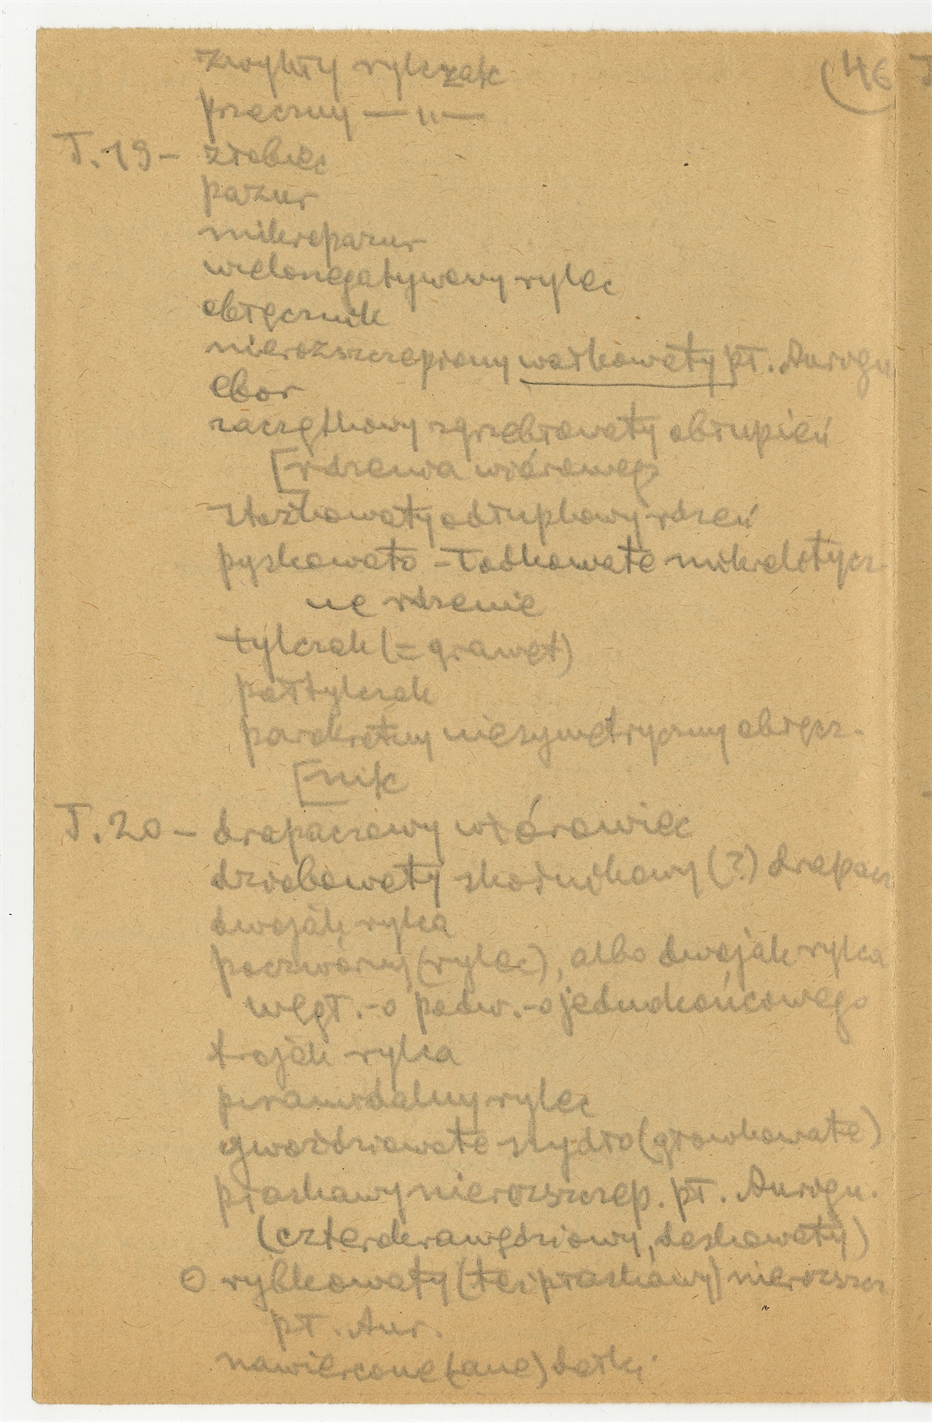 zwykły rylczak
(46
poczwórny — „ —
T.19 – żłobiec
pazur
mikropazur
wielonegatywowy rylec
obłęcznik
nierozszczepiony wałkowaty pł. Aurogn
obor
zaczątkowy zgrzebłowaty obłupień
[rdzenia wiórowego
stożkowaty odłupkowy rdzeń
pyszkowato - łodkowate mikrolitycz-
ne rdzenie
tylczak (= grawet)
półtylczak
parokrotny niesymetryczny obłęcz-
[nik
T.20 – drapaczowy wiórowiec
dziobowaty skośnikowy (?) drapacz
dwojak rylca
poczwórny (rylec), albo dwojak rylca
węgł.-o podw.-o jednokońcowego
trojak rylca
piramidalny rylec
gwoździowate szydło (głowkowate)
płaskawy nierozszczep. pł. Aurogn.
(czterokrawędziowy, deskowaty)
O rybkowaty (też płaskawy) nierozszcz
pł. Aur.
nawiercone (ane) dołki